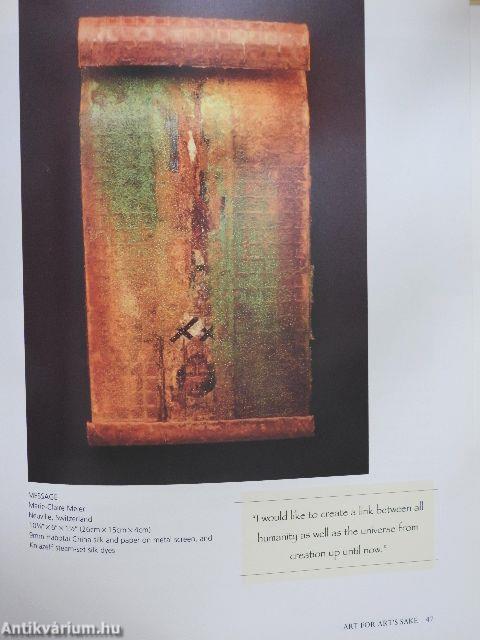 MESSAGE
Marie-Claire Meier
Neuville, Switzerland
10¼" × 6" × 1½" (26cm × 15cm × 4cm)
9mm habotai China silk and paper on metal screen, and
Kniazeff steam-set silk dyes
"I would like to create a link between all
humanity as well as the universe from
creation up until now."
ART FOR ART'S SAKE 47
Antikvárium.hu